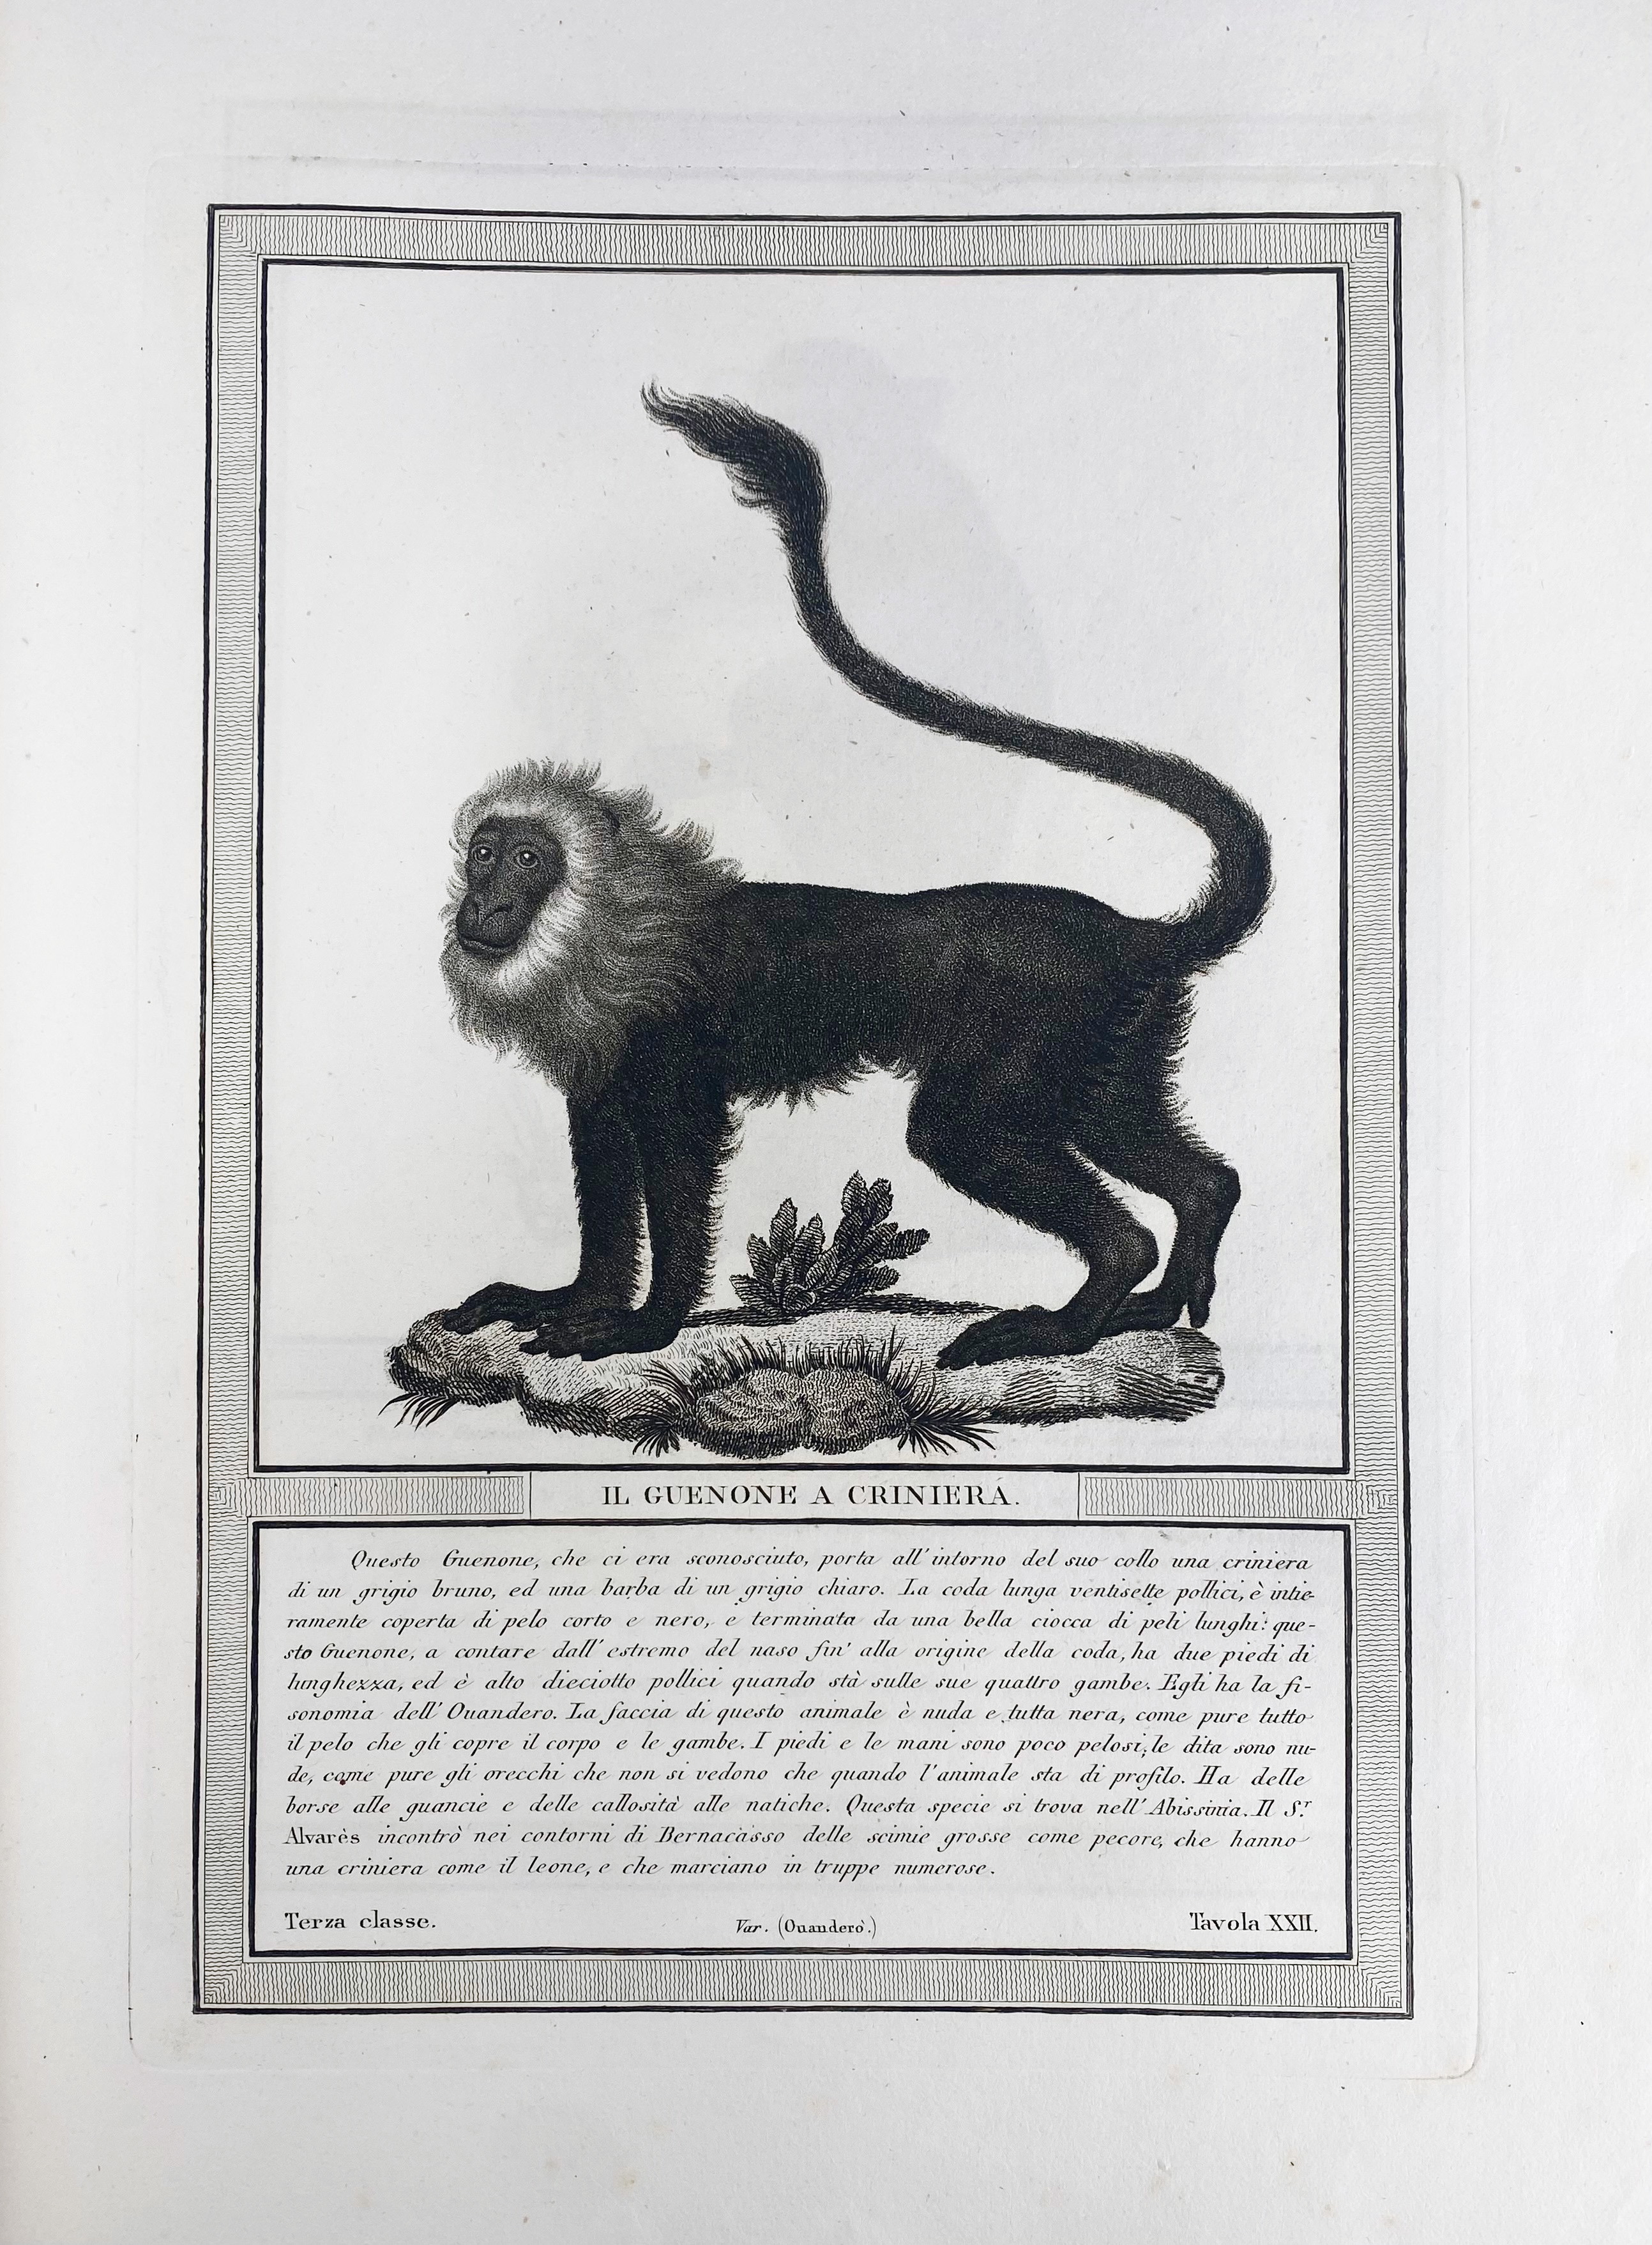 IL GUENONE A CRINIERA.
Questo Guenone, che ci era sconosciuto, porta all' intorno del suo collo una criniera
di un grigio bruno, ed una barba di un grigio chiaro. La coda lunga ventisette pollici, è intie-
ramente coperta di pelo corto e nero, e terminata da una bella ciocca di peli lunghi: que-
sto Guenone, a contare dall' estremo del naso fin' alla origine della coda, ha due piedi di
lunghezza, ed è alto dieciotto pollici quando stà sulle sue quattro gambe. Egli ha la fi-
sonomia dell' Ouandero. La faccia di questo animale è nuda e tutta nera, come pure tutto
il pelo che gli copre il corpo e le gambe. I piedi e le mani sono poco pelosi; le dita sono nu-
de, come pure gli orecchi che non si vedono che quando l'animale sta di profilo. Ha delle
borse alle guancie e delle callosità alle natiche. Questa specie si trova nell' Abissinia. Il S.r
Alvarès incontrò nei contorni di Bernacasso delle scimie grosse come pecore, che hanno
una criniera come il leone, e che marciano in truppe numerose.
Terza classe.
Var. (Ouanderò.)
Tavola XXII.